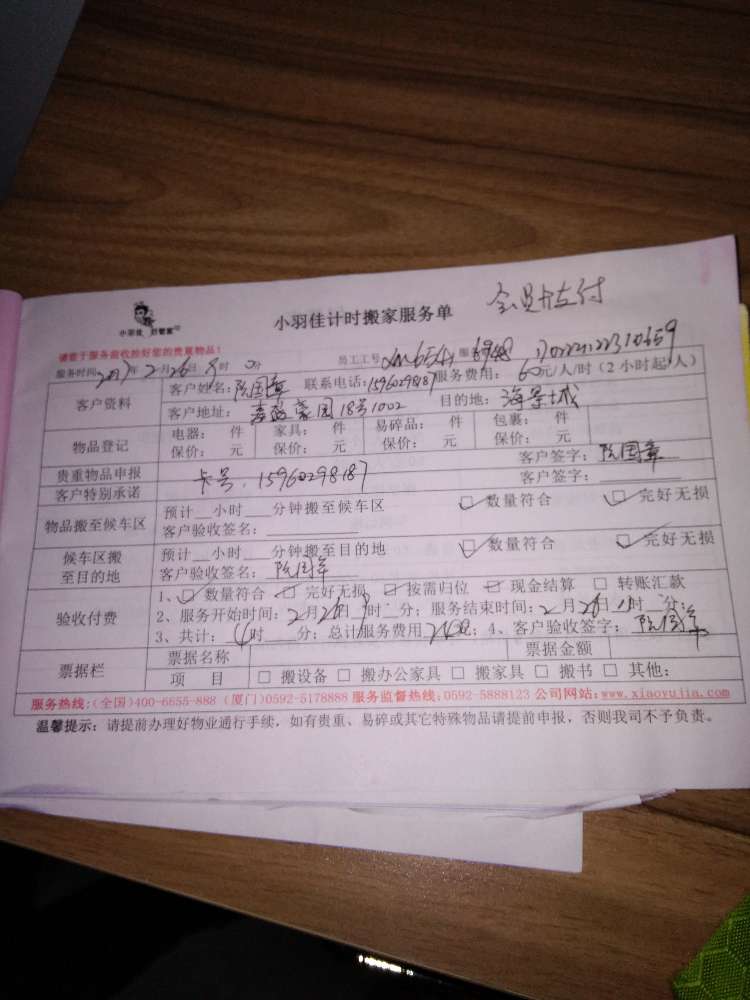 会员卡支付
小羽佳 好管家
小羽佳计时搬家服务单
请您于服务前收拾好您的贵重物品！
服务时间:2017年2月26日8时00分 员工工号 服
客户资料 客户姓名:阮国章 联系电话:15960298187 服务费用: 60元/人/时（2小时起/人）
客户地址: 18号1002 目的地: 海景城
物品登记 电器: 件 家具: 件 易碎品: 件 包裹: 件
保价: 元 保价: 元 保价: 元 保价: 元
贵重物品申报 客户签字: 阮国章
客户特别承诺 卡号. 15960298187 客户签字:
物品搬至候车区 预计 小时 分钟搬至候车区 数量符合 完好无损
客户验收签名:
候车区搬至目的地 预计 小时 分钟搬至目的地 数量符合 完好无损
客户验收签名: 阮国章
验收付费 1、数量符合 完好无损 按需归位 现金结算 转账汇款
2、服务开始时间: 2月26日 时 分; 服务结束时间: 2月26日 时 分;
3、共计: 时 分; 总计服务费用 ; 4、客户验收签字: 阮国章
票据栏 票据名称 票据金额
项 目 搬设备 搬办公家具 搬家具 搬书 其他:
服务热线:(全国)400-6655-888 (厦门)0592-5178888 服务监督热线:0592-5888123 公司网站:www.xiaoyujia.com
温馨提示: 请提前办理好物业通行手续，如有贵重、易碎或其它特殊物品请提前申报，否则我司不予负责。